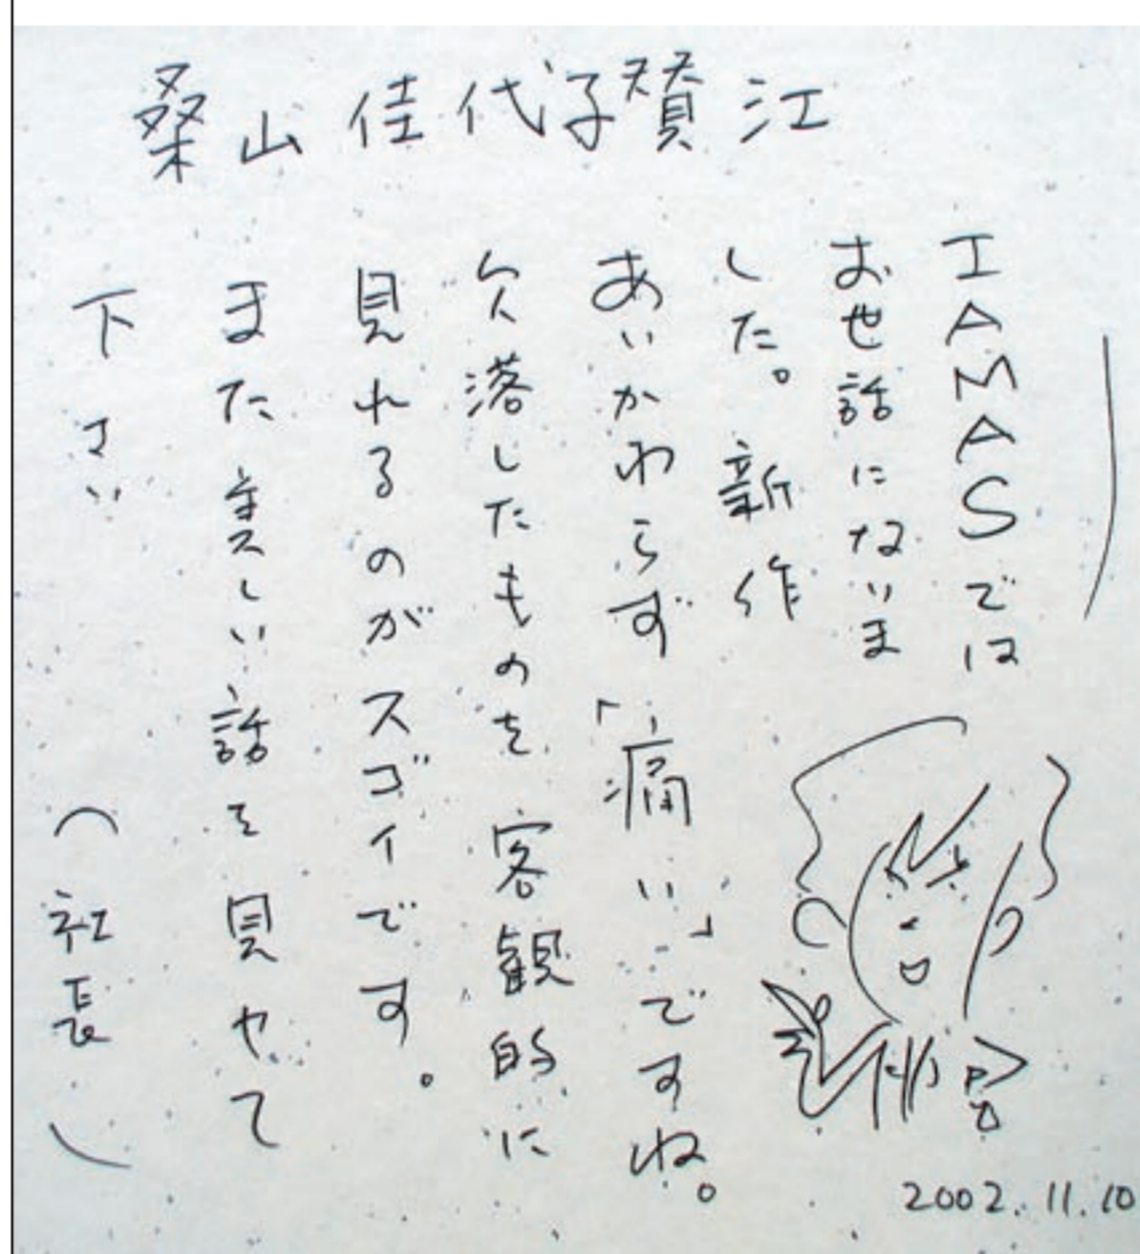 桑山佳代子賛江
IAMASでは
お世話になりま
した。新作
あいかわらず「痛い」ですね。
欠落したものを客観的に
見れるのがスゴイです。
また美しい話を見せて
下さい （社長）
2002.11.10